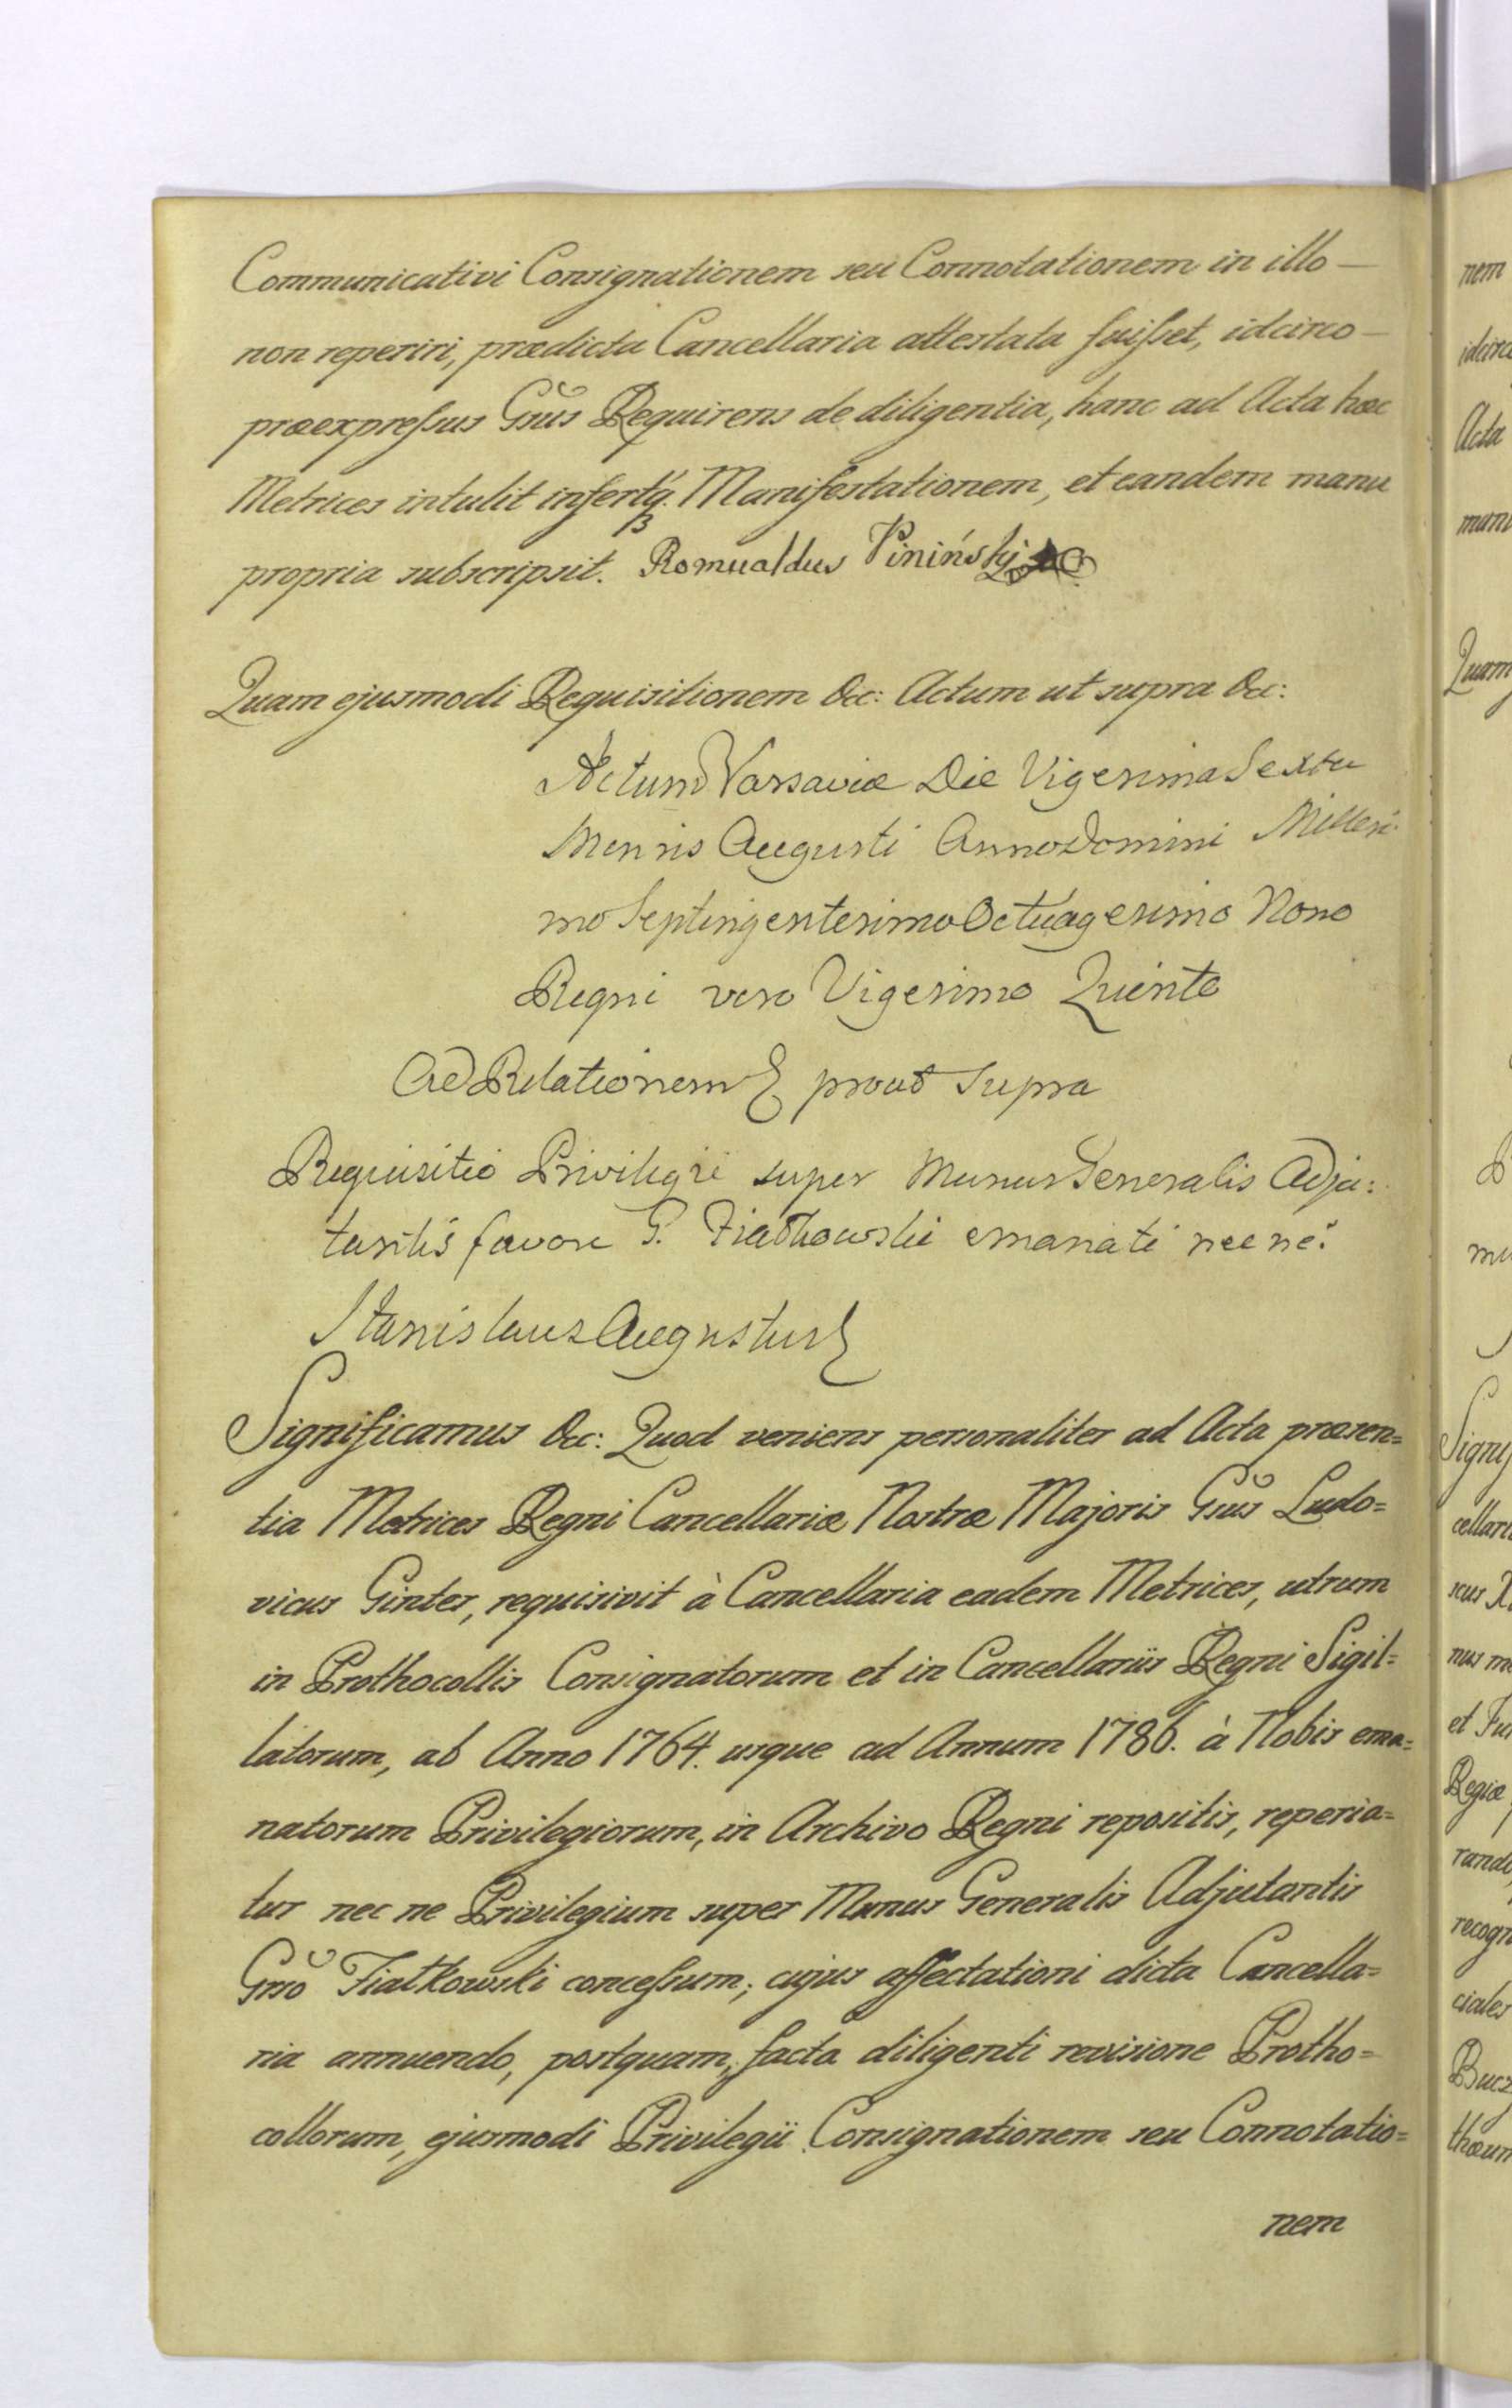 Communicativi Consignationem seu Connotationem in illo —
non reperiri, prædicta Cancellaria attestata fuisset, idcirco —
præexpressus Gsus Requirens de diligentia, hanc ad Acta hæc
Metrices intulit insertq. Manifestationem, et eandem manu
propria subscripsit. Romualdus Pininśkj
Quam ejusmodi Requisitionem &c: Actum ut supra &c:
Actum Varsaviæ Die Vigesima Sexta
Mensis Augusti Anno Domini Millesi-
mo Septingentesimo Octuagesimo Nono
Regni vero Vigesimo Quinto
Ad Relationem prout supra
Requisitio Privilegii super Munus Generalis Adju:
tantis favore G. Fiałkowski emanati nec ne.
Stanislaus Augustus
Significamus &c: Quod veniens personaliter ad Acta præsen=
tia Metrices Regni Cancellariæ Nostræ Majoris Gsus Ludo=
vicus Ginter, requisivit à Cancellaria eadem Metrices, utrum
in Prothocollis Consignatorum et in Cancellariis Regni Sigil=
latorum, ab Anno 1764. usque ad Annum 1786. à Nobis ema=
natorum Privilegiorum, in Archivo Regni repositis, reperia=
tur nec ne Privilegium super Munus Generalis Adjutantis
Gsso Fiałkowski concessum; cujus affectationi dicta Cancella=
ria annuendo, postquam, facta diligenti revisione Protho=
collorum, ejusmodi Privilegii Consignationem seu Connotatio=
nem
nem
Acta
Quam
Regiæ